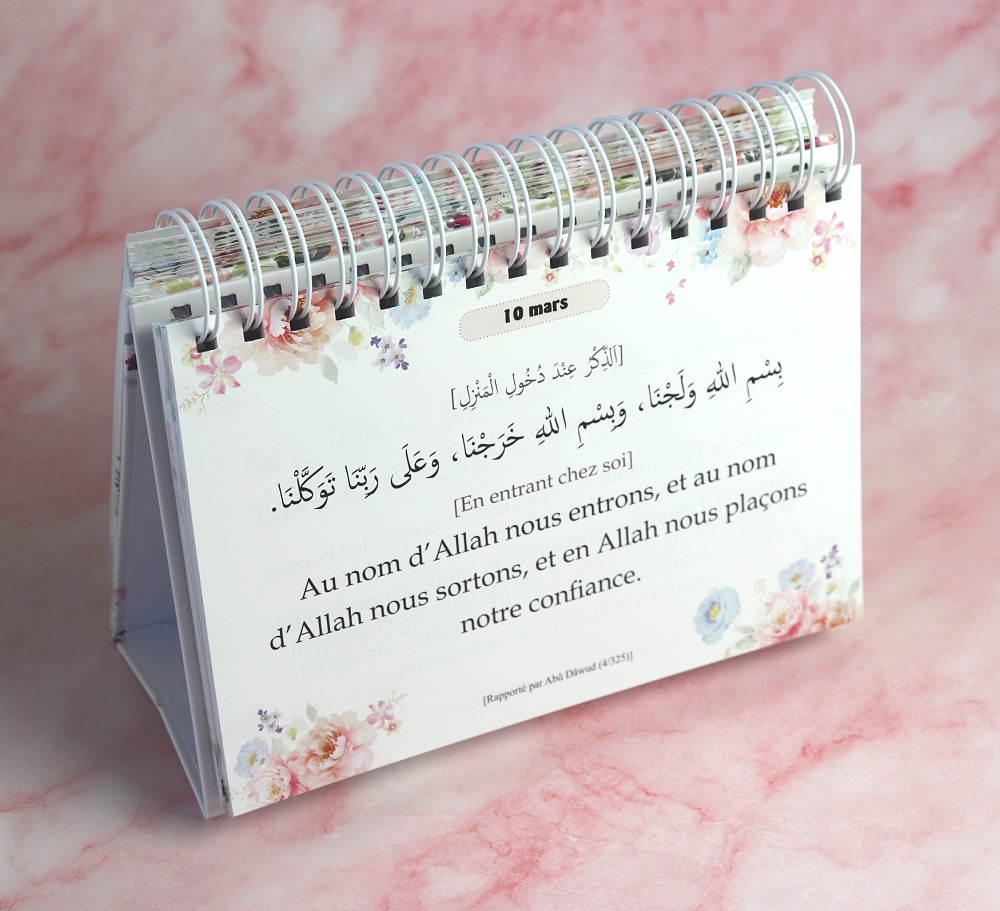 10 mars
[اَلذِّكْرُ عِنْدَ دُخُولِ الْمَنْزِلِ]
بِسْمِ اللهِ وَلَجْنَا، وَبِسْمِ اللهِ خَرَجْنَا، وَعَلَى رَبِّنَا تَوَكَّلْنَا.
[En entrant chez soi]
Au nom d’Allah nous entrons, et au nom
d’Allah nous sortons, et en Allah nous plaçons
notre confiance.
[Rapporté par Abû Dâwud (4/325)]